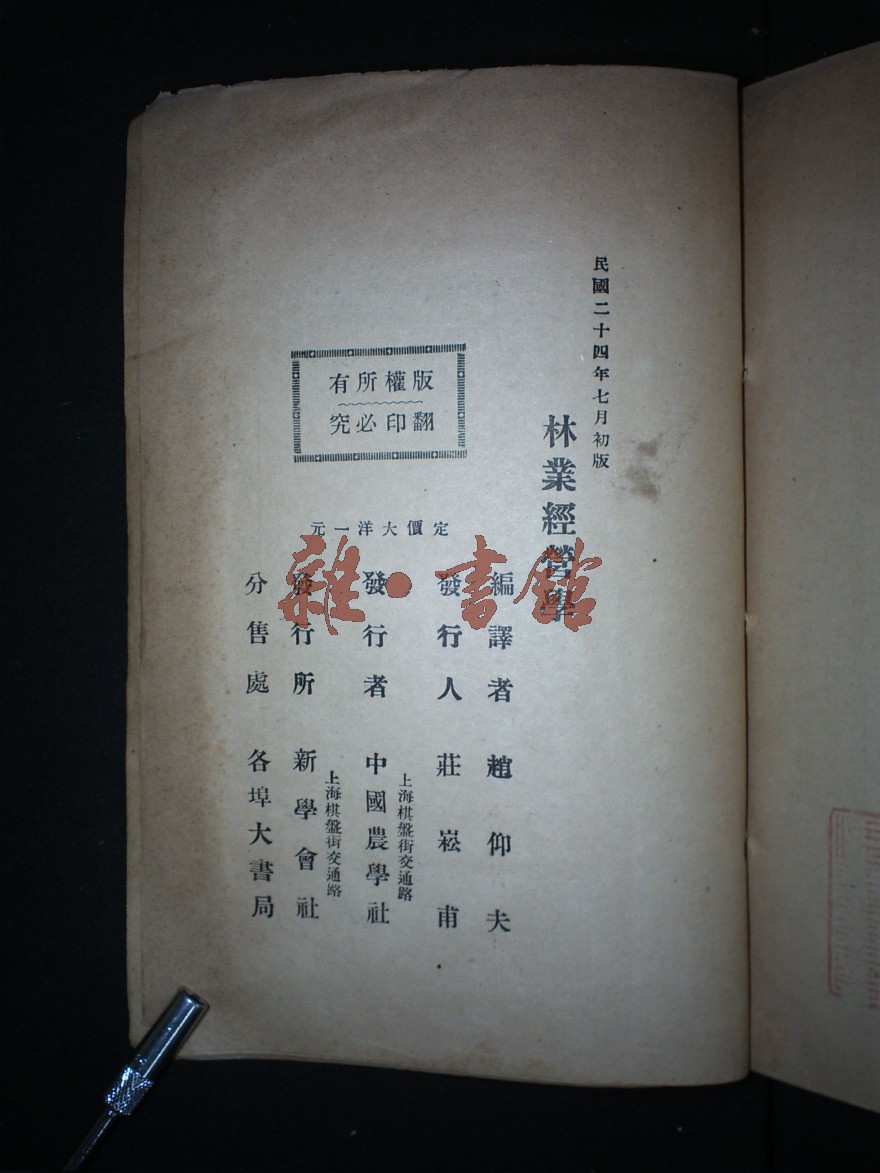 民國二十四年七月初版
林業經營學
編譯者 趙仰夫
發行人 莊崧甫
上海棋盤街交通路
發行者 中國農學社
上海棋盤街交通路
發行所 新學會社
分售處 各埠大書局
定價大洋一元
版權所有
翻印必究
雜·書館